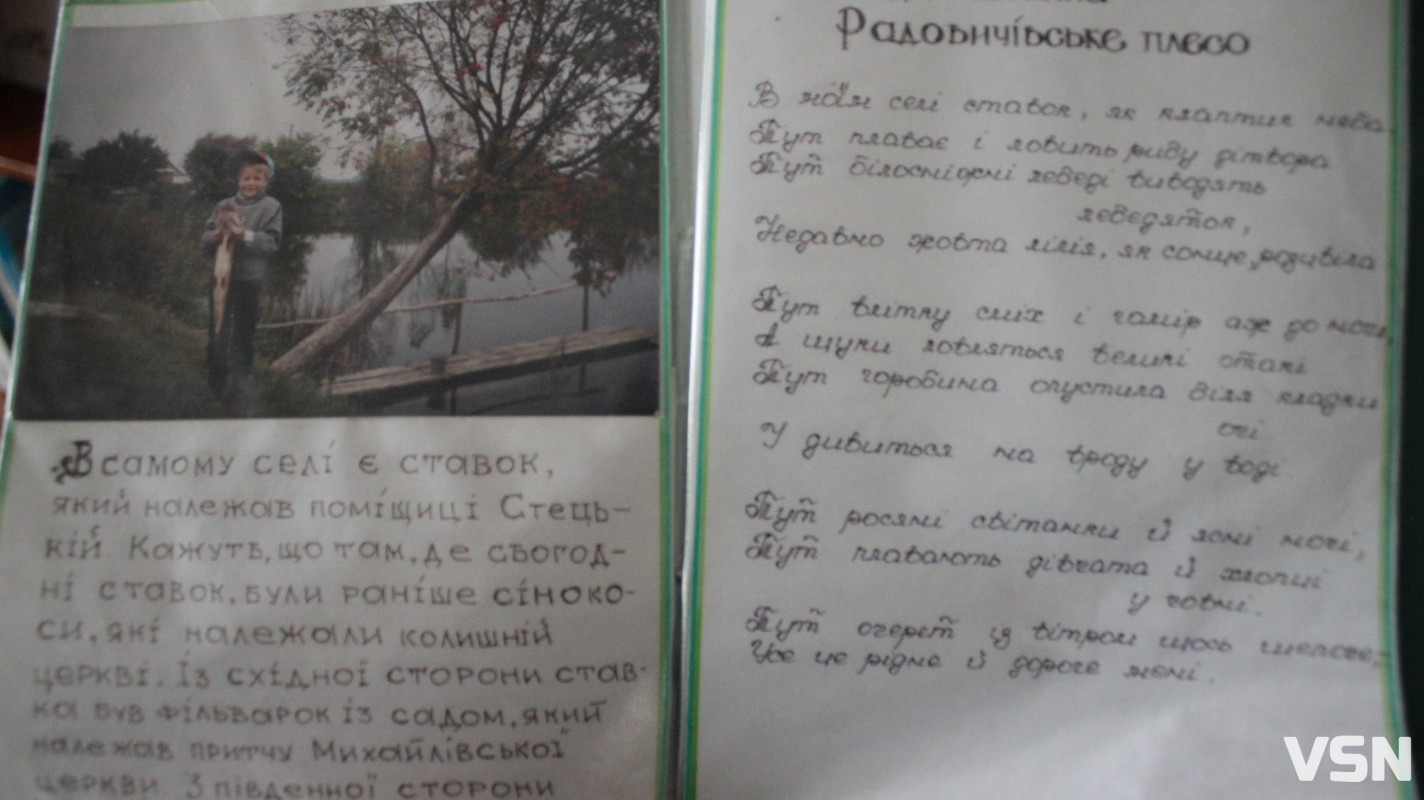 В самому селі є ставок,
який належав поміщиці Стець-
кій. Кажуть, що там, де сьогод-
ні ставок, були раніше сіноко-
си, які належали колишній
церкві. Із східної сторони став-
ка був фільварок із садом, який
належав притчу Михайлівської
церкви. З південної сторони
Радовичівське плесо
В моїм селі ставок, як клаптик неба
Тут плаває і ловить рибу дітвора
Тут білосніжні лебеді виводять
лебедяток,
Недавно жовта лілія, як сонце, розцвіла
Тут влітку сміх і гомір аж до ночі,
А щуки ловляться великі отакі
Тут горобина опустила біля кладки
очі
У дивиться на вроду у воді.
Тут росяні світанки й ясні ночі,
Тут плавають дівчата й хлопці
у човні.
Тут очерет із вітром щось шепоче,
Усе це рідне й дороге мені.
VSN